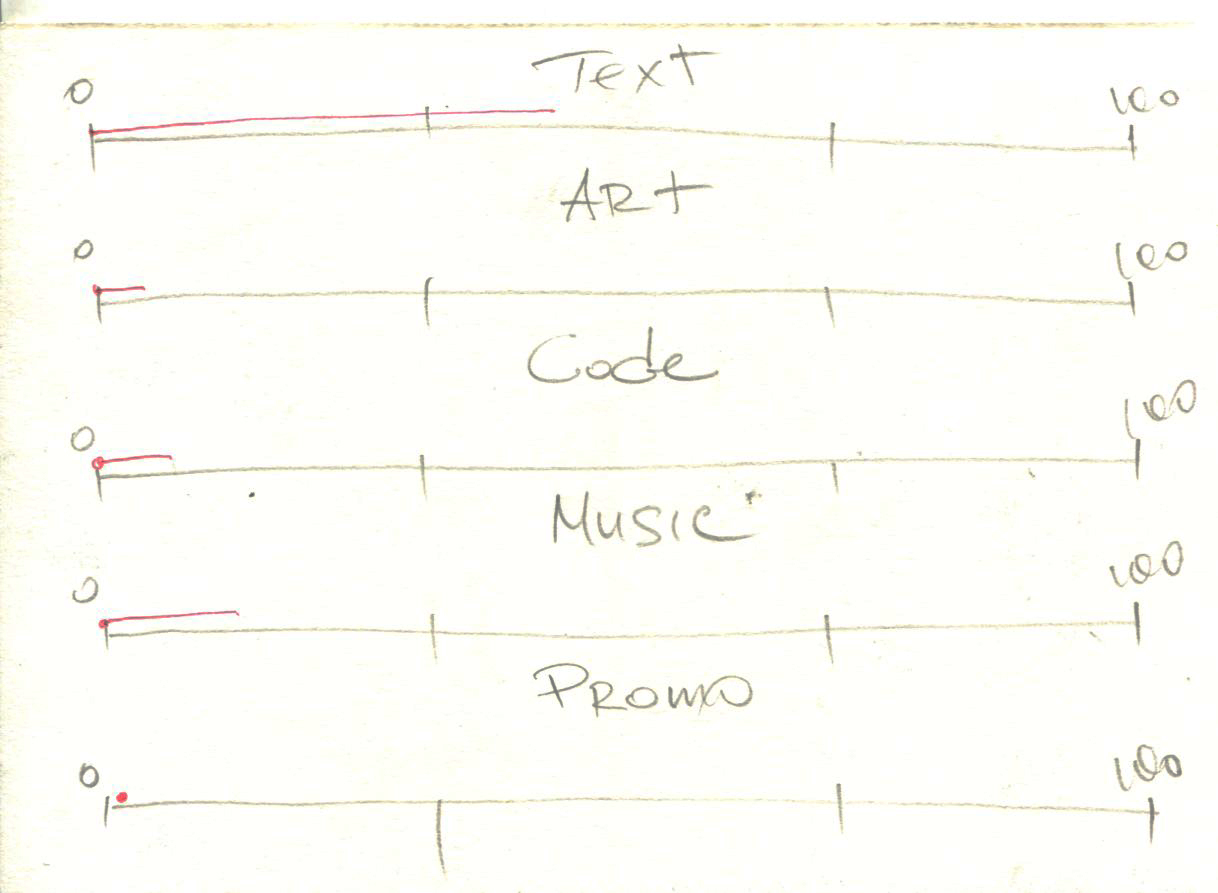 Text
0 100
Art
0 100
Code
0 100
Music
0 100
Promo
0 100